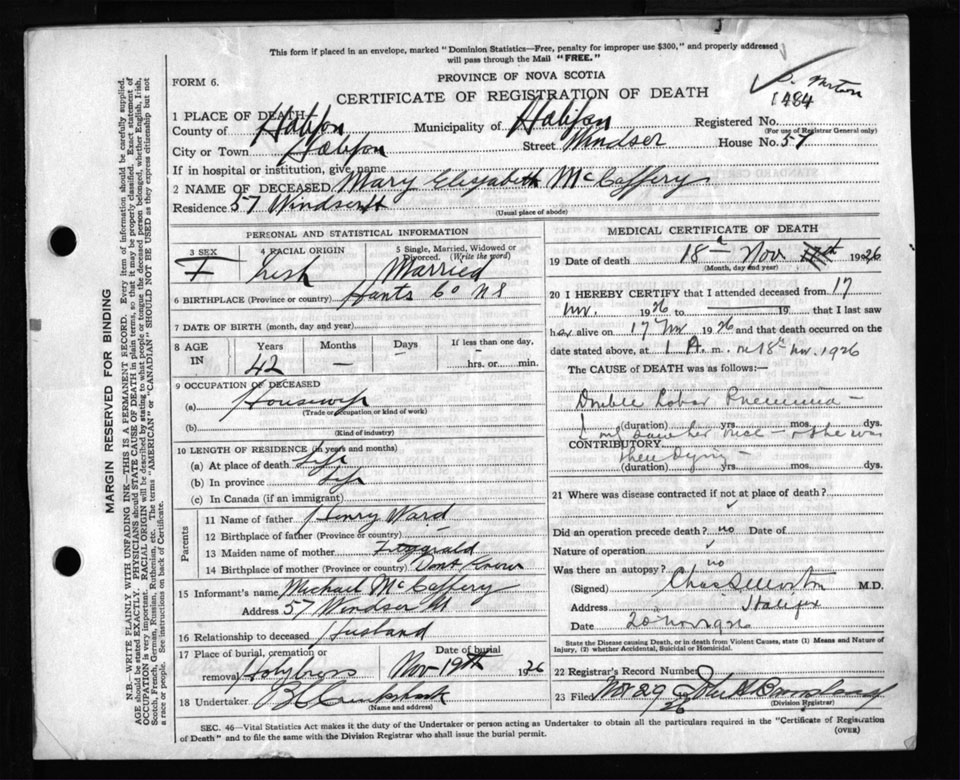 This form if placed in an envelope, marked "Dominion Statistics—Free, penalty for improper use $300," and properly addressed
will pass through the Mail "FREE."
FORM 6.
PROVINCE OF NOVA SCOTIA
CERTIFICATE OF REGISTRATION OF DEATH
1484
1 PLACE OF DEATH
County of Halifax Municipality of Halifax Registered No.
(For use of Registrar General only)
City or Town Halifax Street Windsor House No. 57
If in hospital or institution, give name
2 NAME OF DECEASED Mary Elizabeth McCaffery
Residence 57 Windsor St
(Usual place of abode)
PERSONAL AND STATISTICAL INFORMATION
3 SEX F
4 RACIAL ORIGIN Irish
5 Single, Married, Widowed or Divorced. (Write the word) Married
6 BIRTHPLACE (Province or country) Hants Co NS
7 DATE OF BIRTH (month, day and year)
8 AGE IN Years Months Days If less than one day,
42 — – hrs. or min.
9 OCCUPATION OF DECEASED
(a) Housewife
(Trade occupation or kind of work)
(b)
(Kind of industry)
10 LENGTH OF RESIDENCE (in years and months)
(a) At place of death Life
(b) In province Life
(c) In Canada (if an immigrant)
Parents
11 Name of father Henry Ward
12 Birthplace of father (Province or country)
13 Maiden name of mother
14 Birthplace of mother (Province or country) Dont Know
15 Informant's name Michael McCaffery
Address 57 Windsor St
16 Relationship to deceased Husband
17 Place of burial, cremation or removal Holy Cross Date of burial Nov 19th 1926
18 Undertaker
(Name and address)
MEDICAL CERTIFICATE OF DEATH
19 Date of death 18th Nov 1926
(Month, day and year)
20 I HEREBY CERTIFY that I attended deceased from 17
Nov. 1926 to 19 that I last saw
her alive on 17 Nov 1926 and that death occurred on
date stated above, at 1 A. m. on 18th Nov. 1926
The CAUSE of DEATH was as follows:—
Double Lobar Pneumonia —
(duration) yrs. mos. dys.
I only saw her once — & she was
CONTRIBUTORY
then dying —
(duration) yrs. mos. dys.
21 Where was disease contracted if not at place of death?
Did an operation precede death? no Date of
Nature of operation
Was there an autopsy? no
(Signed) Chas S Morton M.D.
Address Halifax
Date 20 Nov 1926
State the Disease causing Death, or in death from Violent Causes, state (1) Means and Nature of
Injury, (2) whether Accidental, Suicidal or Homicidal.
22 Registrar's Record Number
23 Filed
(Division Registrar)
SEC. 46—Vital Statistics Act makes it the duty of the Undertaker or person acting as Undertaker to obtain all the particulars required in the "Certificate of Registration
of Death" and to file the same with the Division Registrar who shall issue the burial permit.
(OVER)
MARGIN RESERVED FOR BINDING
N.B.—WRITE PLAINLY WITH UNFADING INK—THIS IS A PERMANENT RECORD. Every item of information should be carefully supplied.
AGE should be stated EXACTLY. PHYSICIANS should STATE CAUSE OF DEATH in plain terms, so that it may be properly classified. Exact statement of
OCCUPATION is very important. RACIAL ORIGIN will be described by stating to what people or tongue the deceased person belonged, whether English, Irish,
Scotch, French, German, Russian, Ruthenian, etc. The terms "AMERICAN" or "CANADIAN" SHOULD NOT BE USED as they express citizenship but not
a race or people. See instructions on back of Certificate.